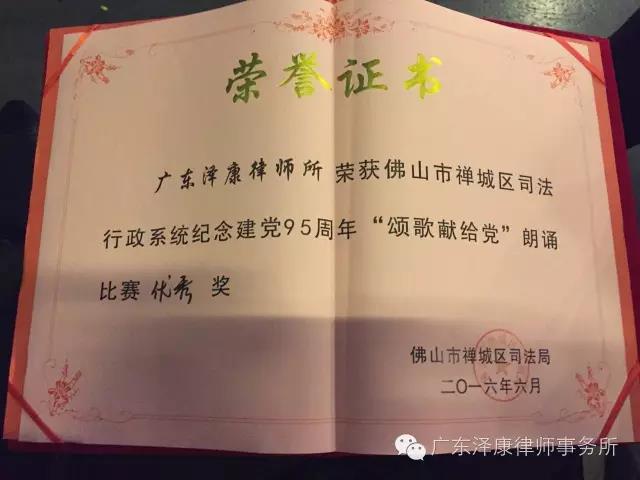 荣誉证书
广东泽康律师所 荣获佛山市禅城区司法
行政系统纪念建党95周年“颂歌献给党”朗诵
比赛 优秀 奖
佛山市禅城区司法局
二〇一六年六月
广东泽康律师事务所